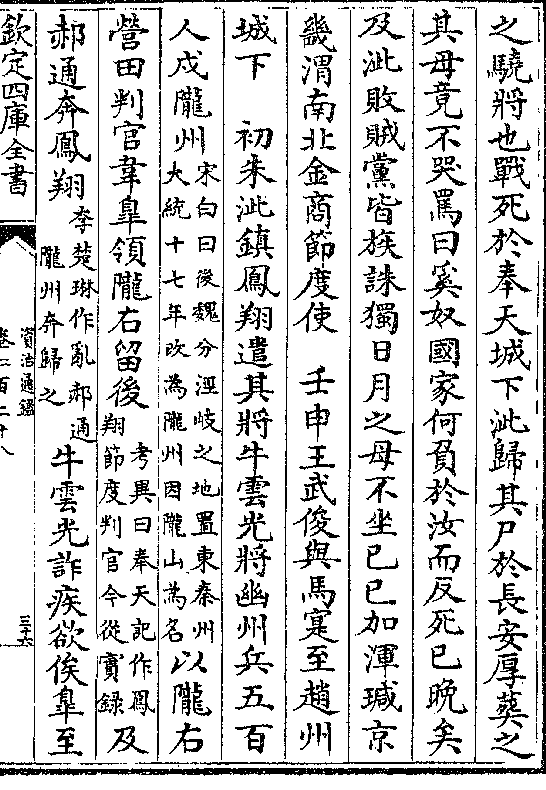 之驍將也戰死於奉天城下泚歸其尸於長安厚葬之
其母竟不哭罵曰奚奴國家何負於汝而反死已晚矣
及泚敗賊黨皆族誅獨日月之母不坐己巳加渾瑊京
畿渭南北金商節度使　壬申王武俊與馬寔至趙州
城下　初朱泚鎮鳳翔遣其將牛雲光將幽州兵五百
人戍隴州宋白曰後魏分涇岐之地置東秦州大統十七年改為隴州因隴山為名以隴右
營田判官韋臯領隴右留後考異曰奉天記作鳳翔節度判官今從實録及
郝通奔鳳翔李楚琳作亂郝通隴州奔歸之牛雲光詐疾欲俟臯至
欽定四庫全書
資治通鑑
卷二百二十八
三十六